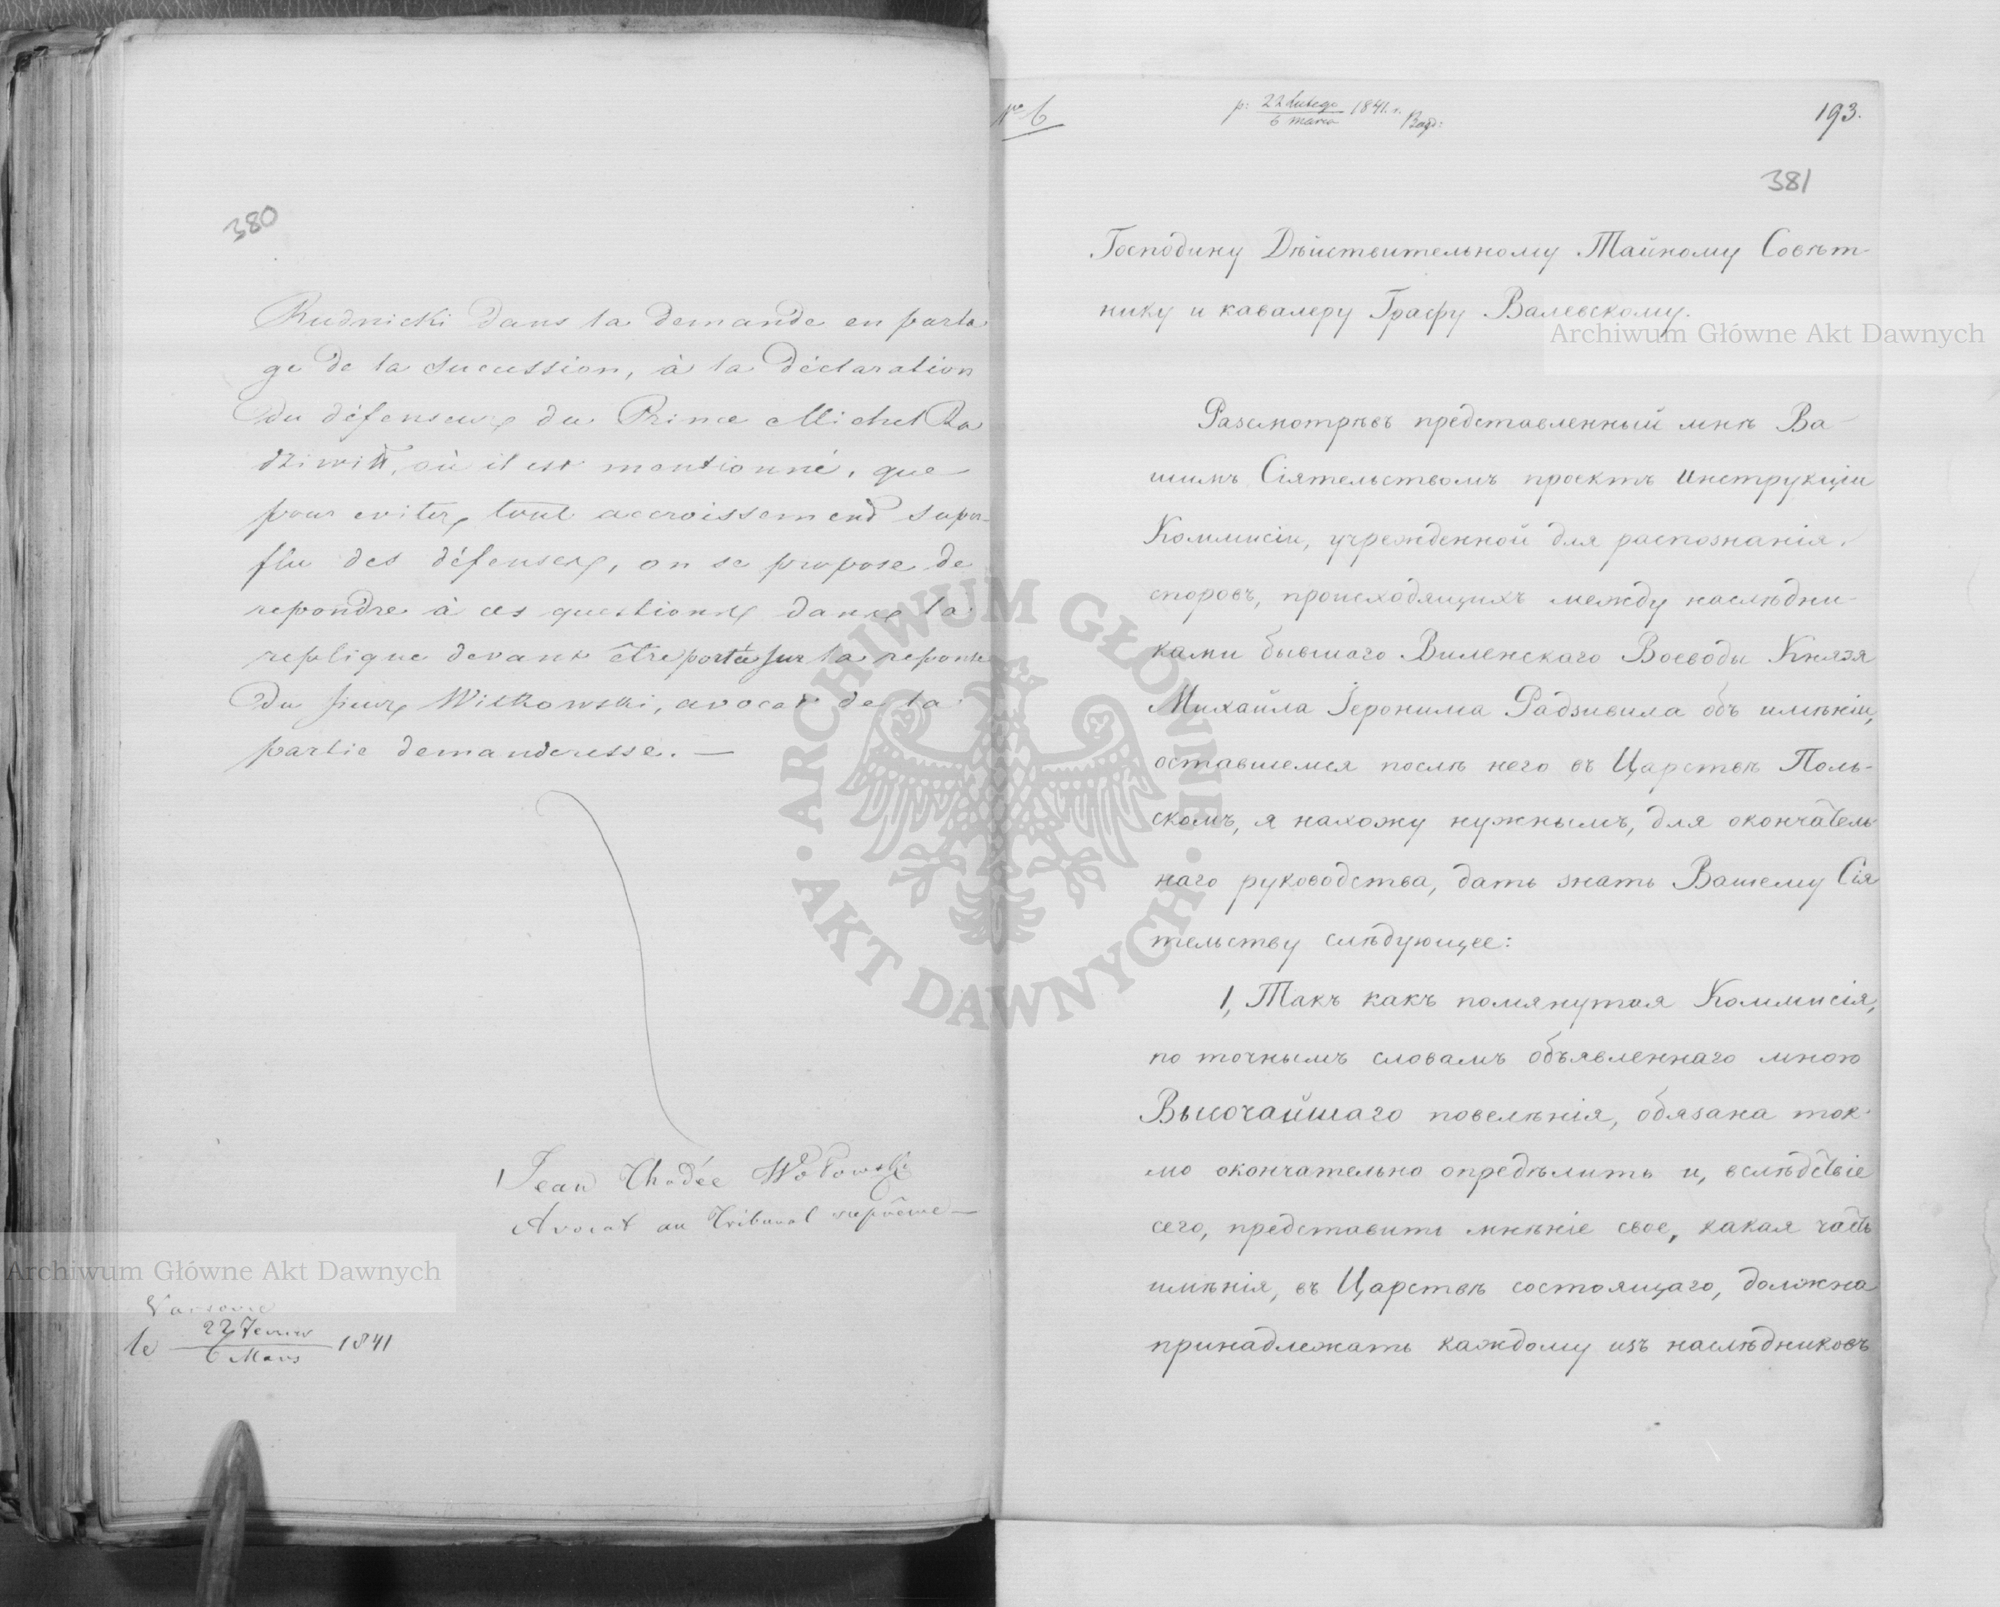 380
Rudnicki dans la demande en parta
ge de la sucussion, à la déclaration
du défenseur du Prince Michel Ra
dziwiłł, où il est mentionné, que
pour eviter tout accroissement super-
flu des défenses, on se propose de
repondre à ces questions dans la
replique devant être portée sur la reponse
du sieur Wilkowski, avocat de la
partie demanderesse. —
Jean Thadée Wołowski
Avocat au Tribunal suprême —
Varsovie
le 22 Fevrier / 6 Mars 1841
No 6
p: 22 Lutego / 6 marca 1841 r.
193.
381
Господину Дѣйствительному Тайному Совѣт-
нику и кавалеру Графу Валевскому.
Разсмотрѣвъ представленный мнѣ Ва-
шимъ Сіятельствомъ проектъ Инструкціи
Коммисіи, учрежденной для распознанія
споровъ, происходящихъ между наслѣдни-
ками бывшаго Виленскаго Воеводы Князя
Михайла Іеронима Радзивила объ имѣніи,
оставшемся послѣ него въ Царствѣ Поль-
скомъ, я нахожу нужнымъ, для окончатель
наго руководства, дать знать Вашему Сія
тельству слѣдующее:
1, Такъ какъ помянутая Коммисія,
по точнымъ словамъ объявленнаго мною
Высочайшаго повелѣнія, обязана ток-
мо окончательно опредѣлить и, вслѣдствіе
сего, представить мнѣніе свое, какая часть
имѣнія, въ Царствѣ состоящаго, должна
принадлежать каждому изъ наслѣдниковъ
Archiwum Główne Akt Dawnych
Archiwum Główne Akt Dawnych
ARCHIWUM GŁÓWNE · AKT DAWNYCH ·